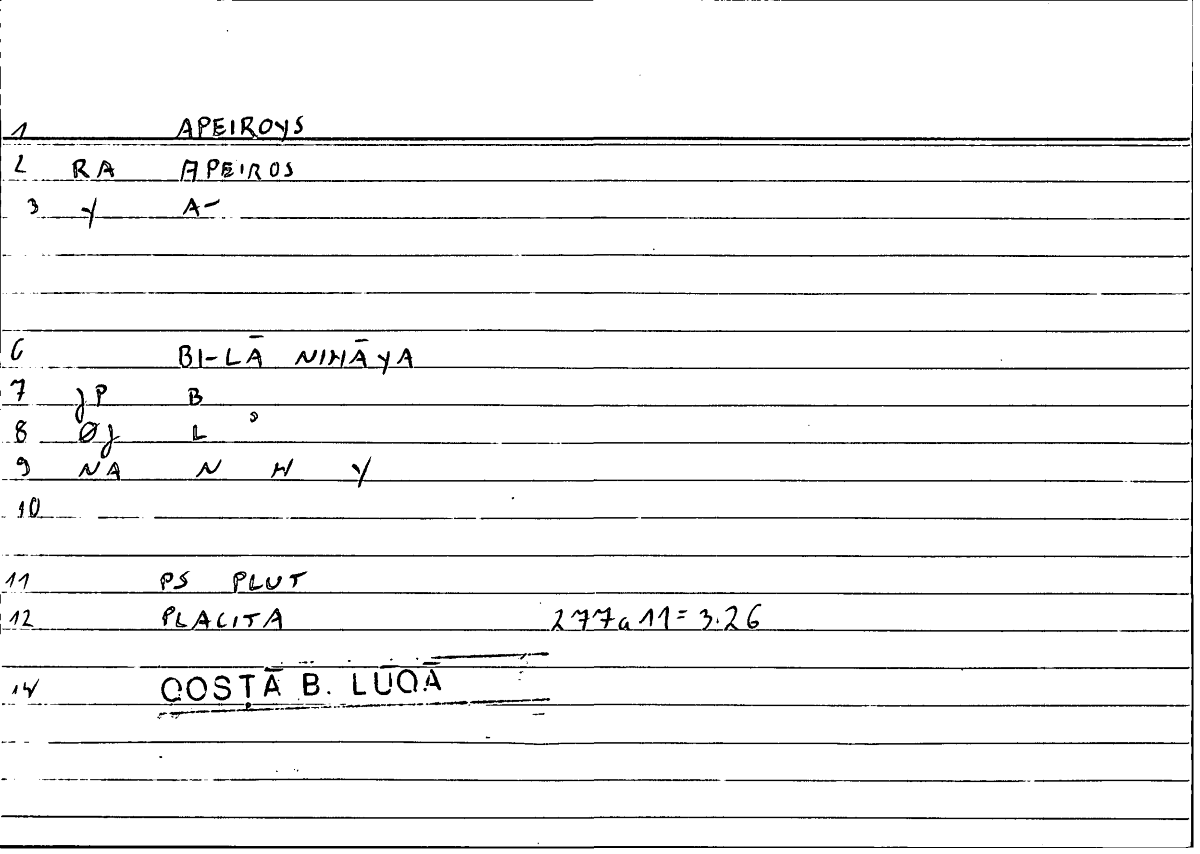 1 APEIROYS
2 RA APEIROS
3 Y A-
6 BI-LĀ NIHĀYA
7 JP B
8 ØJ L
9 NA N H Y
10
11 PS PLUT
12 PLACITA 277a11=3.26
14 QOSṬĀ B. LŪQĀ